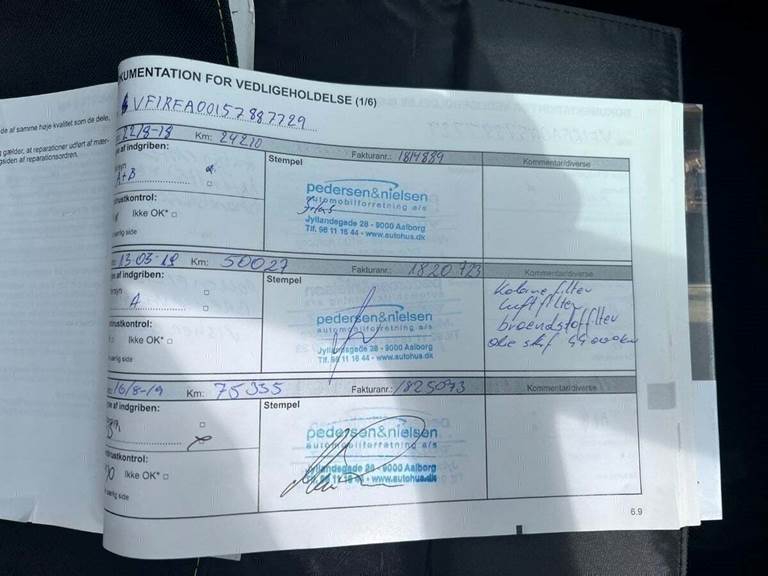 KUMENTATION FOR VEDLIGEHOLDELSE (1/6)
VF1RFA00157887729
de af samme høje kvalitet som de dele,
g gælder, at reparationer udført af mær-
gsiden af reparationsordren.
22/8-18 Km: 24210 Fakturanr.: 1814889
af indgriben: Stempel Kommentar/diverse
A+B
pedersen&nielsen
automobilforretning a/s
Jyllandsgade 28 - 9000 Aalborg
Tlf. 98 11 16 44 - www.autohus.dk
trustkontrol:
Ikke OK*
særlig side
13-03-19 Km: 50027 Fakturanr.: 1820723
e af indgriben: Stempel Kommentar/diverse
A
Kabinefilter
luftfilter
brændstoffilter
pedersen&nielsen
automobilforretning a/s
Jyllandsgade 28 - 9000 Aalborg
Tlf. 98 11 16 44 - www.autohus.dk
trustkontrol:
Ikke OK*
særlig side
16/8-19 Km: 75335 Fakturanr.: 1825073
e af indgriben: Stempel Kommentar/diverse
pedersen&nielsen
automobilforretning a/s
Jyllandsgade 28 - 9000 Aalborg
www.autohus.dk
trustkontrol:
Ikke OK*
særlig side
6.9